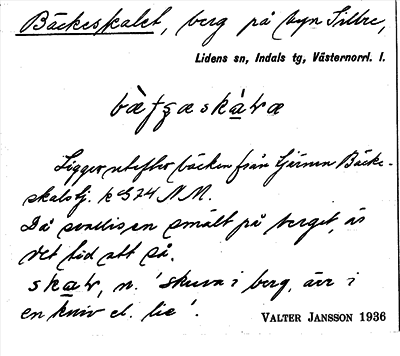 Bäckeskalet, berg på byn Sillre,
Lidens sn, Indals tg, Västernorrl. l.
Ligger utefter bäcken från tjärnen Bäcke-
skalstj. k G74 NM.
Då snedisen smält på berget, är
det tid att så.
skaw, n. 'skura i berg, ärr i
en kniv el. lie'.
VALTER JANSSON 1936